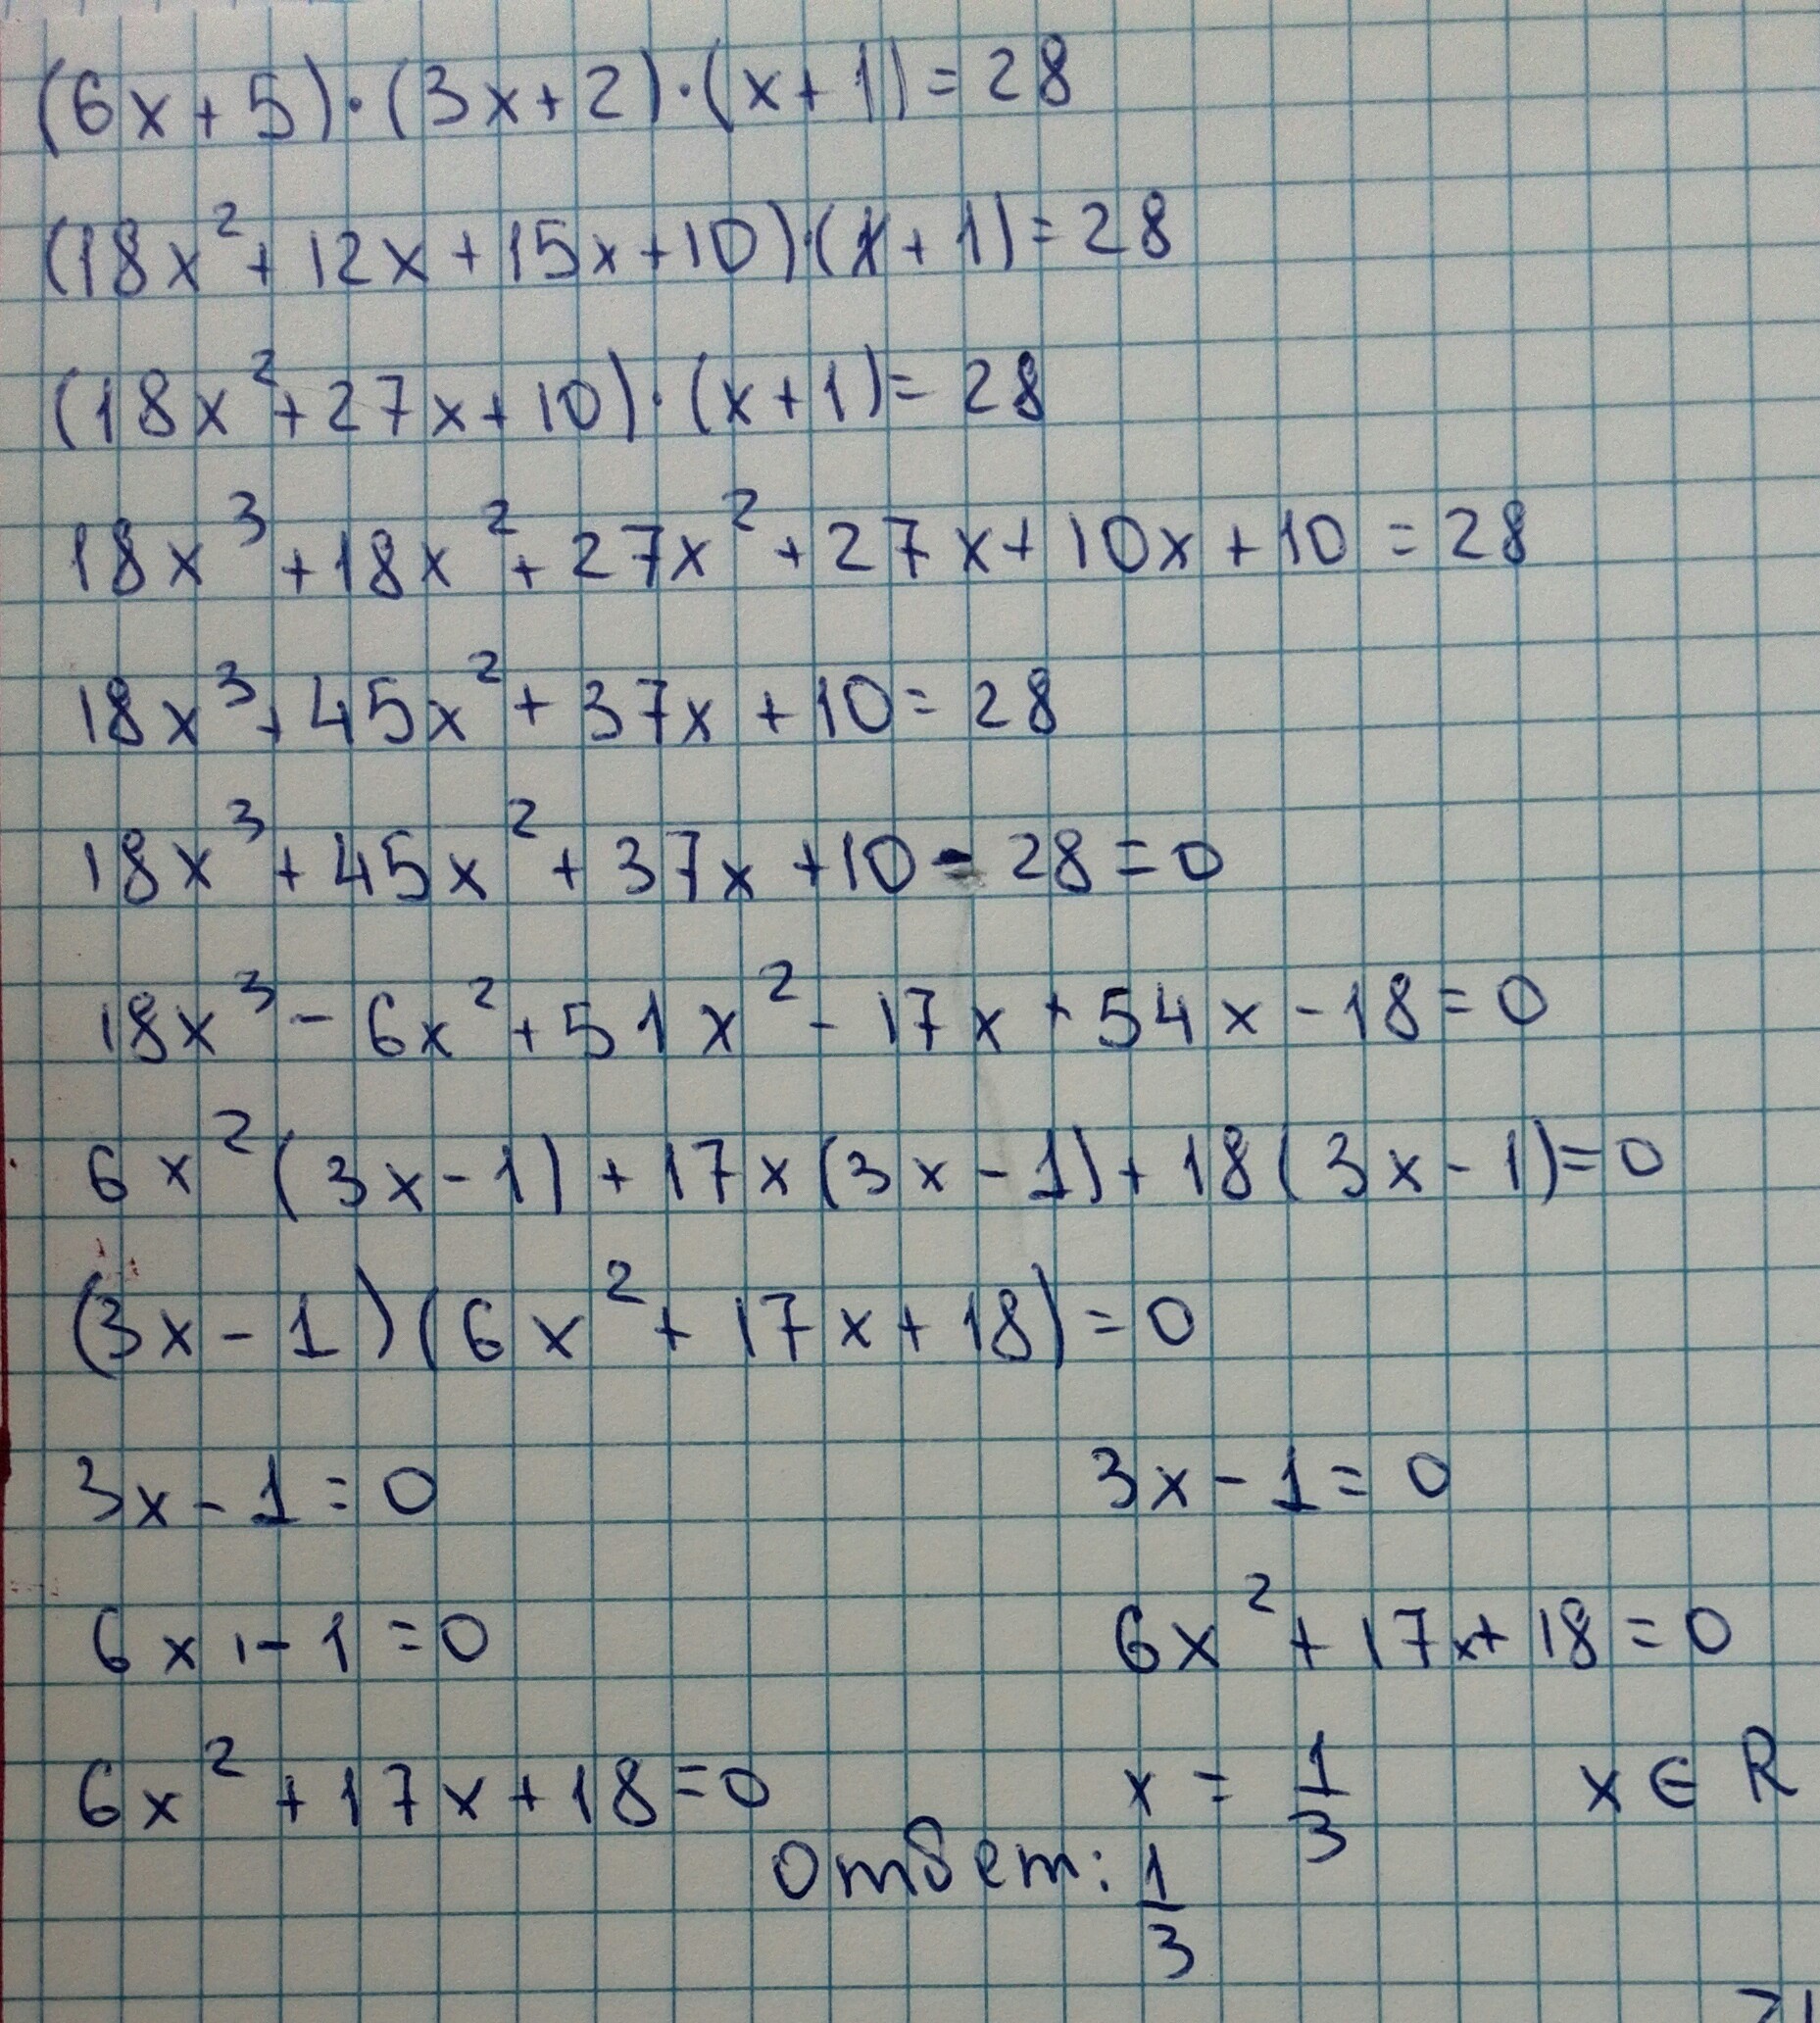 (6x+5)·(3x+2)·(x+1)=28
(18x²+12x+15x+10)·(x+1)=28
(18x²+27x+10)·(x+1)=28
18x³+18x²+27x²+27x+10x+10=28
18x³+45x²+37x+10=28
18x³+45x²+37x+10-28=0
18x³-6x²+51x²-17x+54x-18=0
6x²(3x-1)+17x(3x-1)+18(3x-1)=0
(3x-1)(6x²+17x+18)=0
3x-1=0 3x-1=0
6x-1=0 6x²+17x+18=0
6x²+17x+18=0 x=1/3 x∈R
Ответ: 1/3